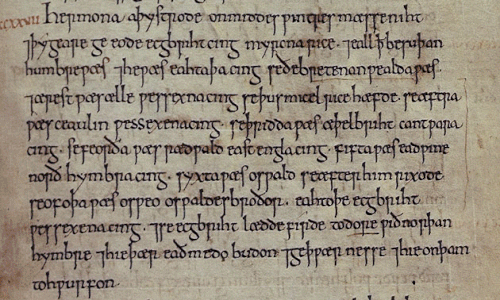 xxvii Her mona aþystrode on middes wintres mæsse niht
⁊ þy geare geeode ecgbriht cing myrcna rice ⁊ eall ꝥ be suþan
humbre wæs ⁊ he wæs eahtaþa cing se ðe bretenanwealda wæs
⁊ ærest wæs ælle wessexna cing se þus micel rice hæfde · se æftra
wæs ceaulin wessexena cing · se þridda wæs æþelbriht cantwara
cing · se feorða wæs rædwald eastengla cing · fifta wæs eadwine
norðhymbra cing · syxta wæs oswald se æfter him rixode ·
seofoþa wæs osweo oswaldes broðor · eahtoþe ecgbriht
wessexena cing · ⁊ se ecgbriht lædde firde to dore wið norþan
hymbre ⁊ hie þær eadmedo budon ⁊ geþwærnesse ⁊ hie on þam
tohwurfon